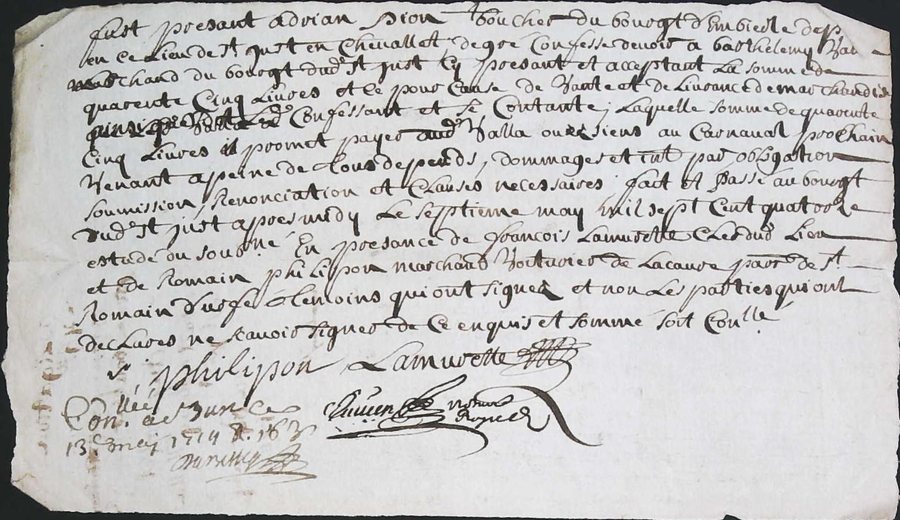 fust presant adrian Sion boucher du bourgt d'Embierle
en ce Lieu de St Just en Chevallet, de gré Confesse devoir a barthelemy
marchand du bourgt dud. St Just Cy presant et acceptant La somme de
quarente Cinq Livres et ce pour Cause de Vante et de Livrance de marchandise
Confessant et se Contante, Laquelle somme de quarente
Cinq Livres promet payer aud. Balla ou es siens au Carnaval prochain
Venant a peine de tous depends, dommages et int. par obligation
soumission Renonciation et Clauses necessaires, fait et passé au bourgt
dud. St Just apres midy Le septieme may mil sept Cent quatorze
En presance de françois Lamurette Clerc dud. Lieu
et de Romain philipon marchand Voiturier de parr. de St.
Romain d'urfé temoins qui ont signez et non Les parties qui ont
declares ne scavoir signer de Ce enquis et sommé soit Conllé
philipon Lamurette
notaire
Royal
13e may 1714 R. 163